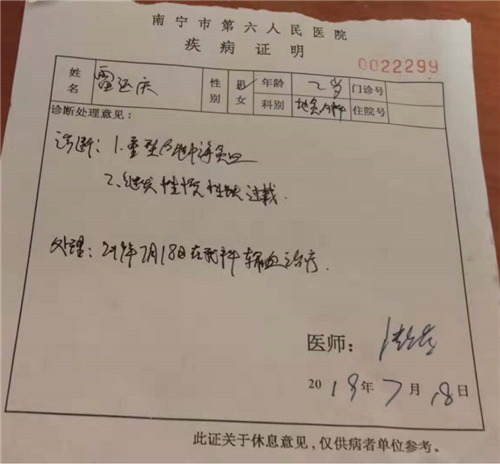 南宁市第六人民医院
疾病证明
0022299
姓名 雷还庆 性别 男 女 年龄 2岁 门诊号
科别 地贫门诊 住院号
诊断处理意见：
诊断：1.重型β地中海贫血
2.继发性慢性铁过载.
处理：2019年7月18日在我科输血治疗.
医师：
2019年7月18日
此证关于休息意见，仅供病者单位参考。